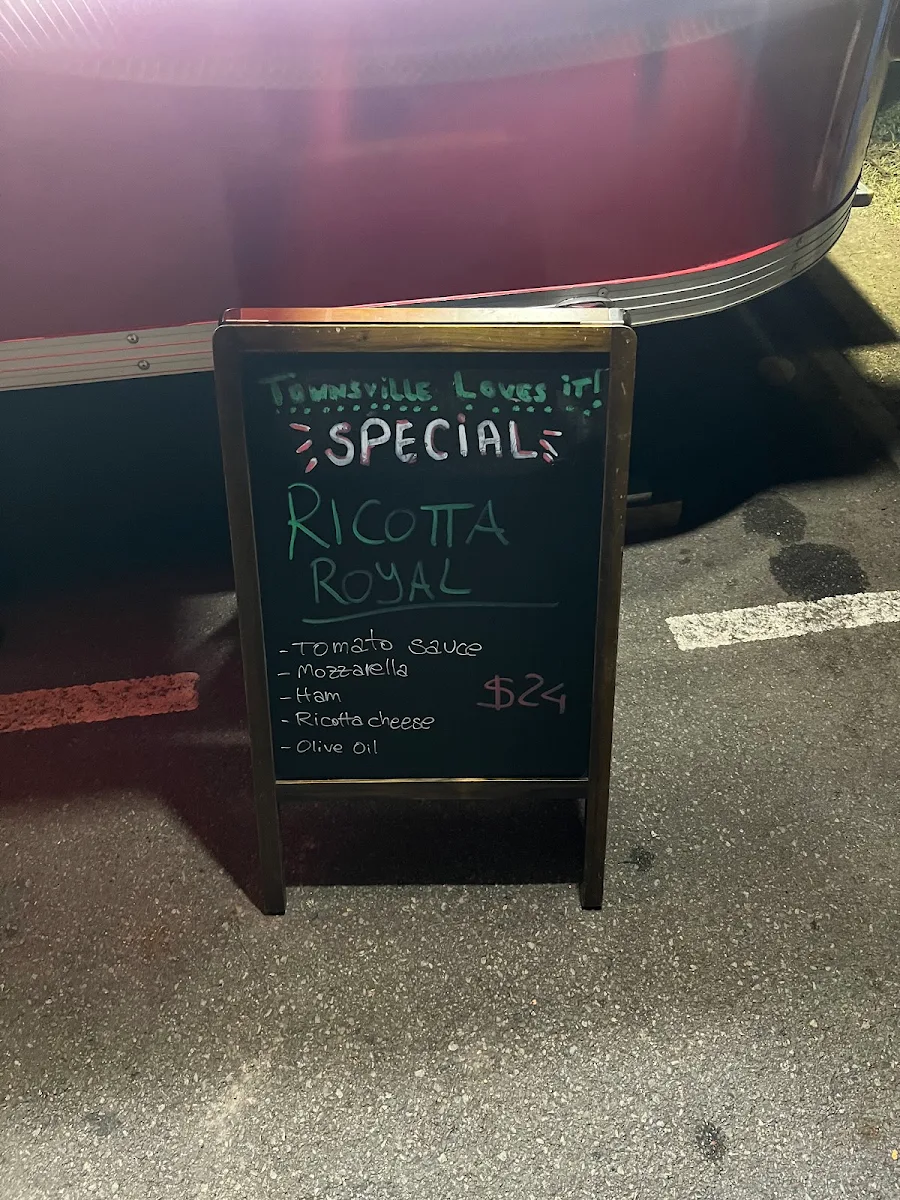 Townsville Loves iT!
SPECiAL
RICOTTA
ROYAL
- Tomato sauce
- Mozzarella
- Ham
- Ricotta cheese
- Olive Oil
$24